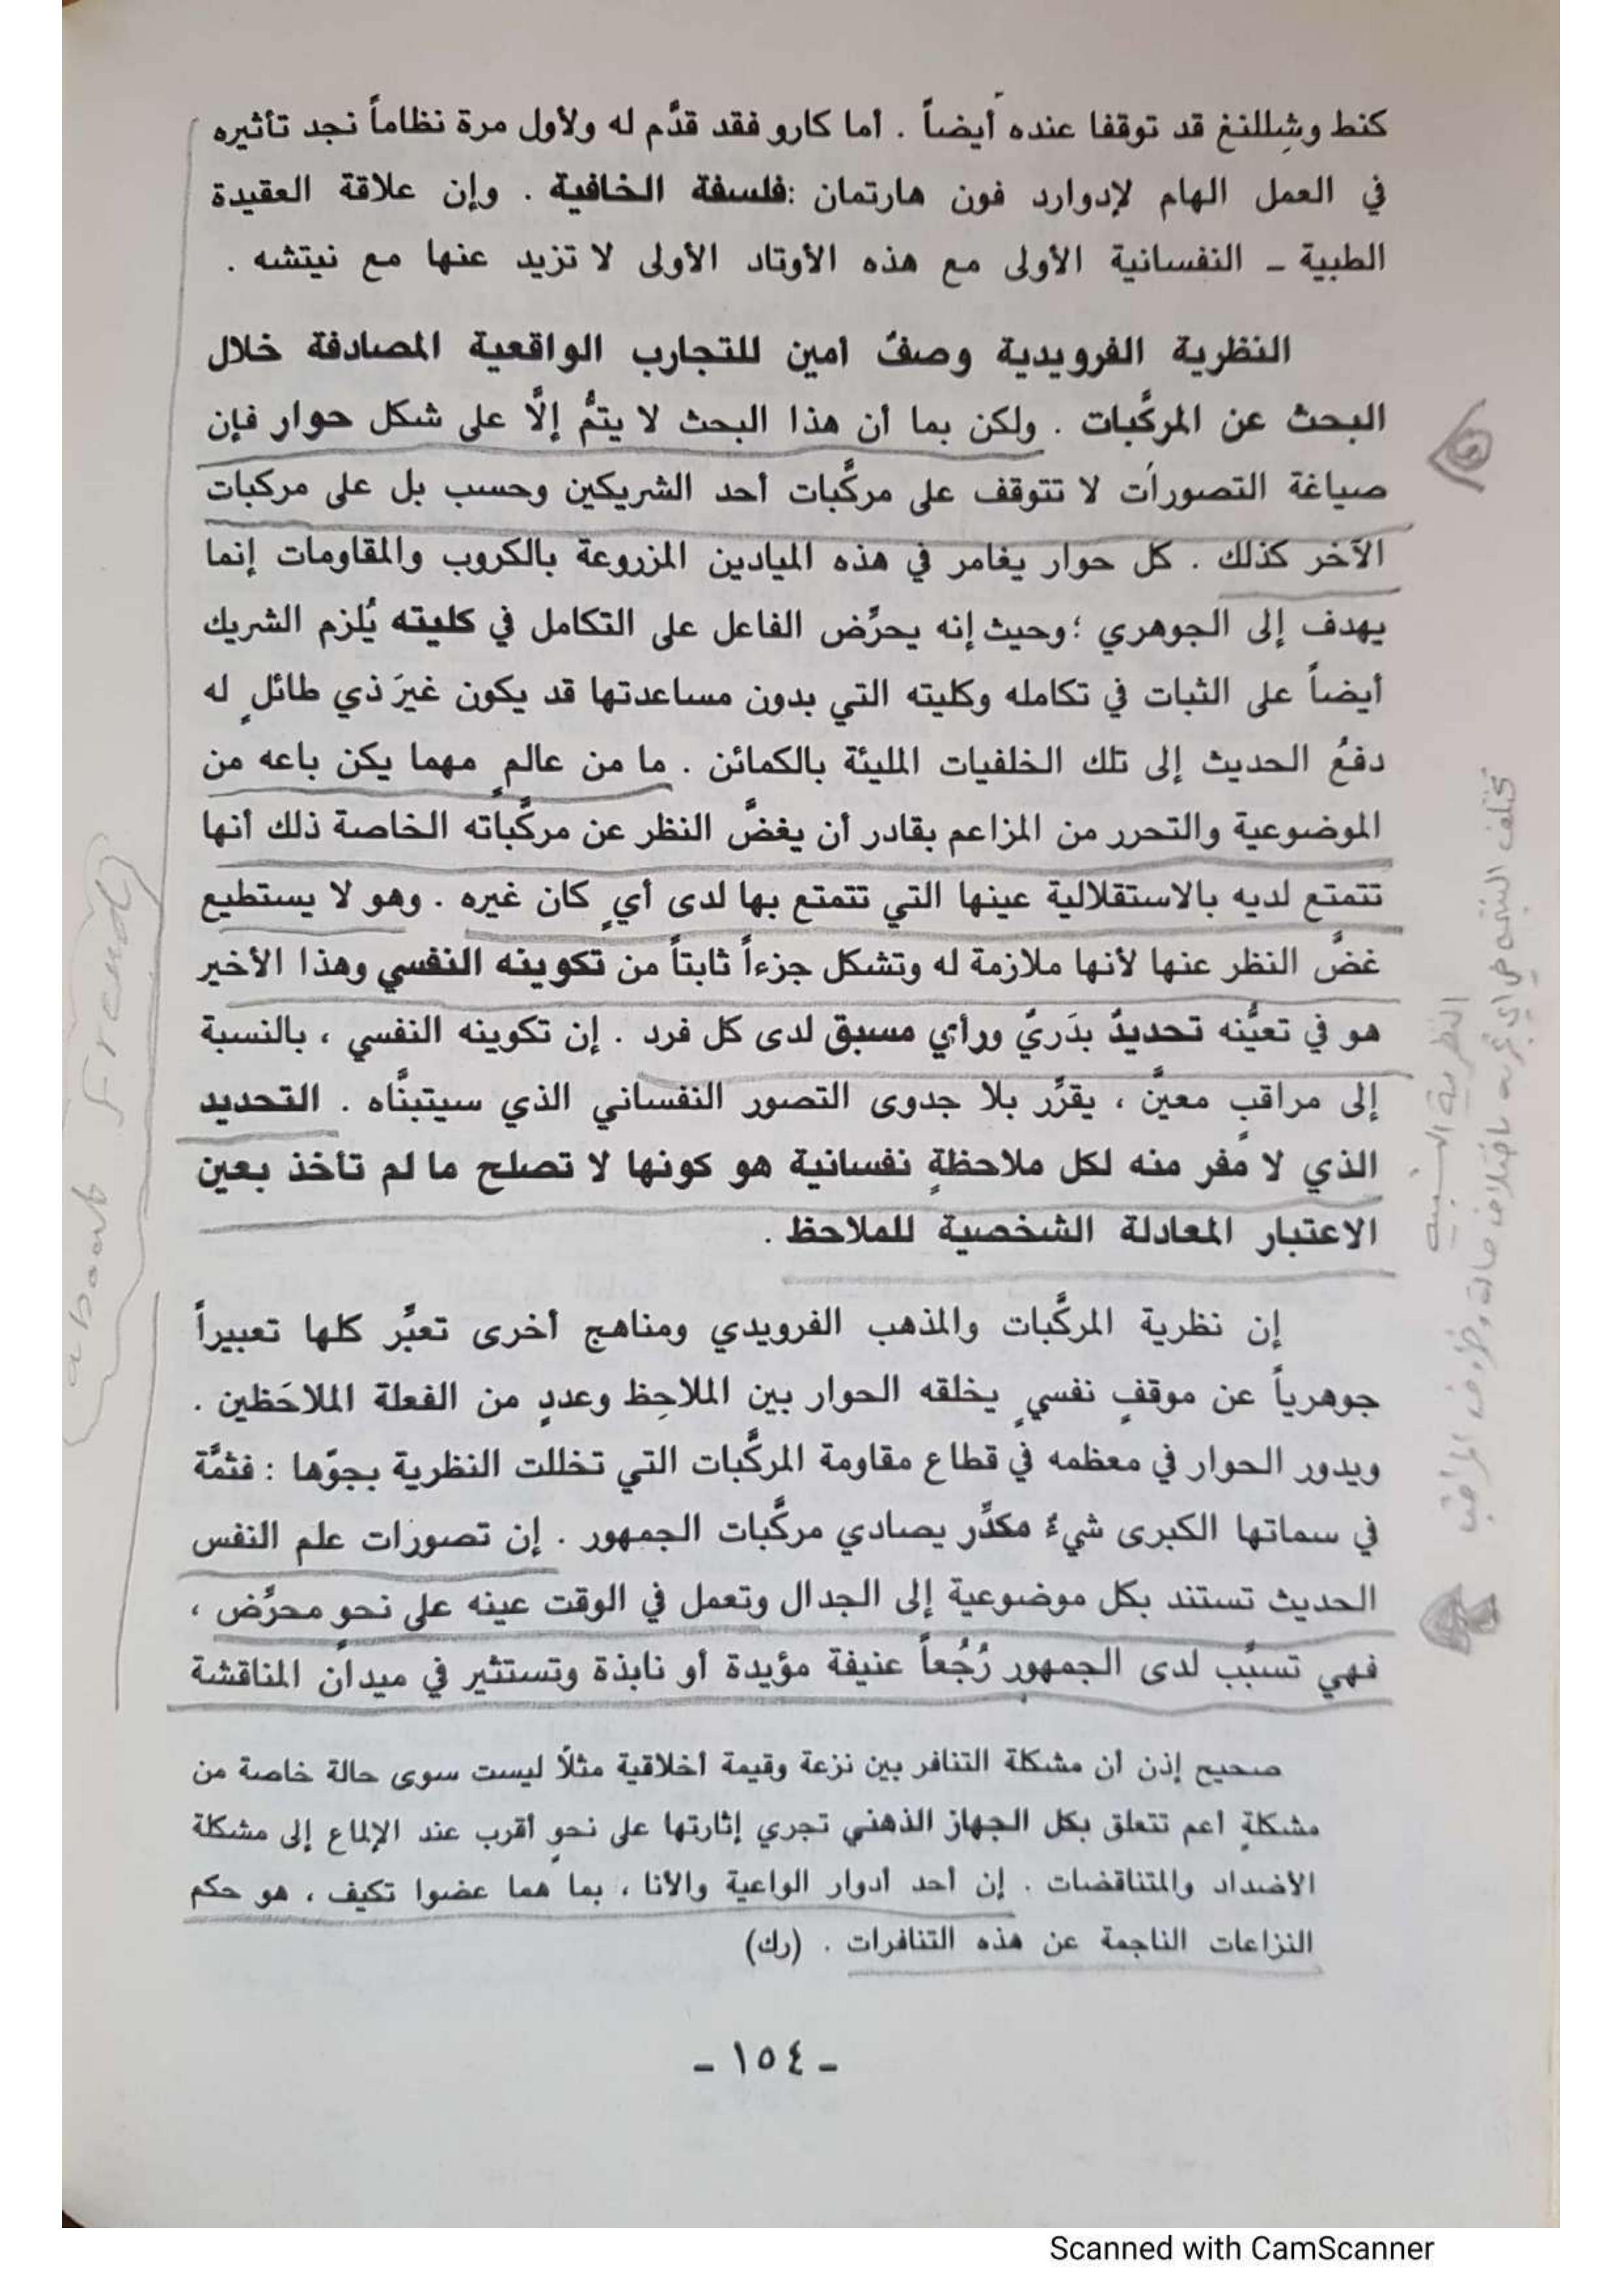 كنط وشِللنغ قد توقفا عنده أيضاً . أما كارو فقد قدَّم له ولأول مرة نظاماً نجد تأثيره
في العمل الهام لإدوارد فون هارتمان :فلسفة الخافية . وإن علاقة العقيدة
الطبية ـ النفسانية الأولى مع هذه الأوتاد الأولى لا تزيد عنها مع نيتشه .
النظرية الفرويدية وصفٌ أمين للتجارب الواقعية المصادفة خلال
البحث عن المركَّبات . ولكن بما أن هذا البحث لا يتمُّ إلَّا على شكل حوار فإن
صياغة التصورات لا تتوقف على مركَّبات أحد الشريكين وحسب بل على مركبات
الآخر كذلك . كل حوار يغامر في هذه الميادين المزروعة بالكروب والمقاومات إنما
يهدف إلى الجوهري ؛وحيث إنه يحرِّض الفاعل على التكامل في كليته يُلزم الشريك
أيضاً على الثبات في تكامله وكليته التي بدون مساعدتها قد يكون غيرَ ذي طائلٍ له
دفعُ الحديث إلى تلك الخلفيات المليئة بالكمائن . ما من عالمٍ مهما يكن باعه من
الموضوعية والتحرر من المزاعم بقادر أن يغضَّ النظر عن مركَّباته الخاصة ذلك أنها
تتمتع لديه بالاستقلالية عينها التي تتمتع بها لدى أيٍ كان غيره . وهو لا يستطيع
غضَّ النظر عنها لأنها ملازمة له وتشكل جزءاً ثابتاً من تكوينه النفسي وهذا الأخير
هو في تعيُّنه تحديدٌ بدَريّ ورأي مسبق لدى كل فرد . إن تكوينه النفسي ، بالنسبة
إلى مراقبٍ معيَّن ، يقرِّر بلا جدوى التصور النفساني الذي سيتبنَّاه . التحديد
الذي لا مفر منه لكل ملاحظةٍ نفسانية هو كونها لا تصلح ما لم تأخذ بعين
الاعتبار المعادلة الشخصية للملاحظ .
إن نظرية المركَّبات والمذهب الفرويدي ومناهج أخرى تعبَّر كلها تعبيراً
جوهرياً عن موقفٍ نفسيٍ يخلقه الحوار بين الملاحِظ وعددٍ من الفعلة الملاحَظين .
ويدور الحوار في معظمه في قطاع مقاومة المركَّبات التي تخللت النظرية بجوّها : فثمَّة
في سماتها الكبرى شيءٌ مكدِّر يصادي مركَّبات الجمهور . إن تصورات علم النفس
الحديث تستند بكل موضوعية إلى الجدال وتعمل في الوقت عينه على نحوٍ محرِّض ،
فهي تسبِّب لدى الجمهور رُجُعاً عنيفة مؤيدة أو نابذة وتستثير في ميدان المناقشة
صحيح إذن أن مشكلة التنافر بين نزعة وقيمة أخلاقية مثلًا ليست سوى حالة خاصة من
مشكلةٍ أعم تتعلق بكل الجهاز الذهني تجري إثارتها على نحوٍ أقرب عند الإلماع إلى مشكلة
الأضداد والمتناقضات . إن أحد أدوار الواعية والأنا ، بما هما عضوا تكيف ، هو حكم
النزاعات الناجمة عن هذه التنافرات . (رك)
ـ ١٥٤ ـ
about Freud
النظرية النسبية
Scanned with CamScanner